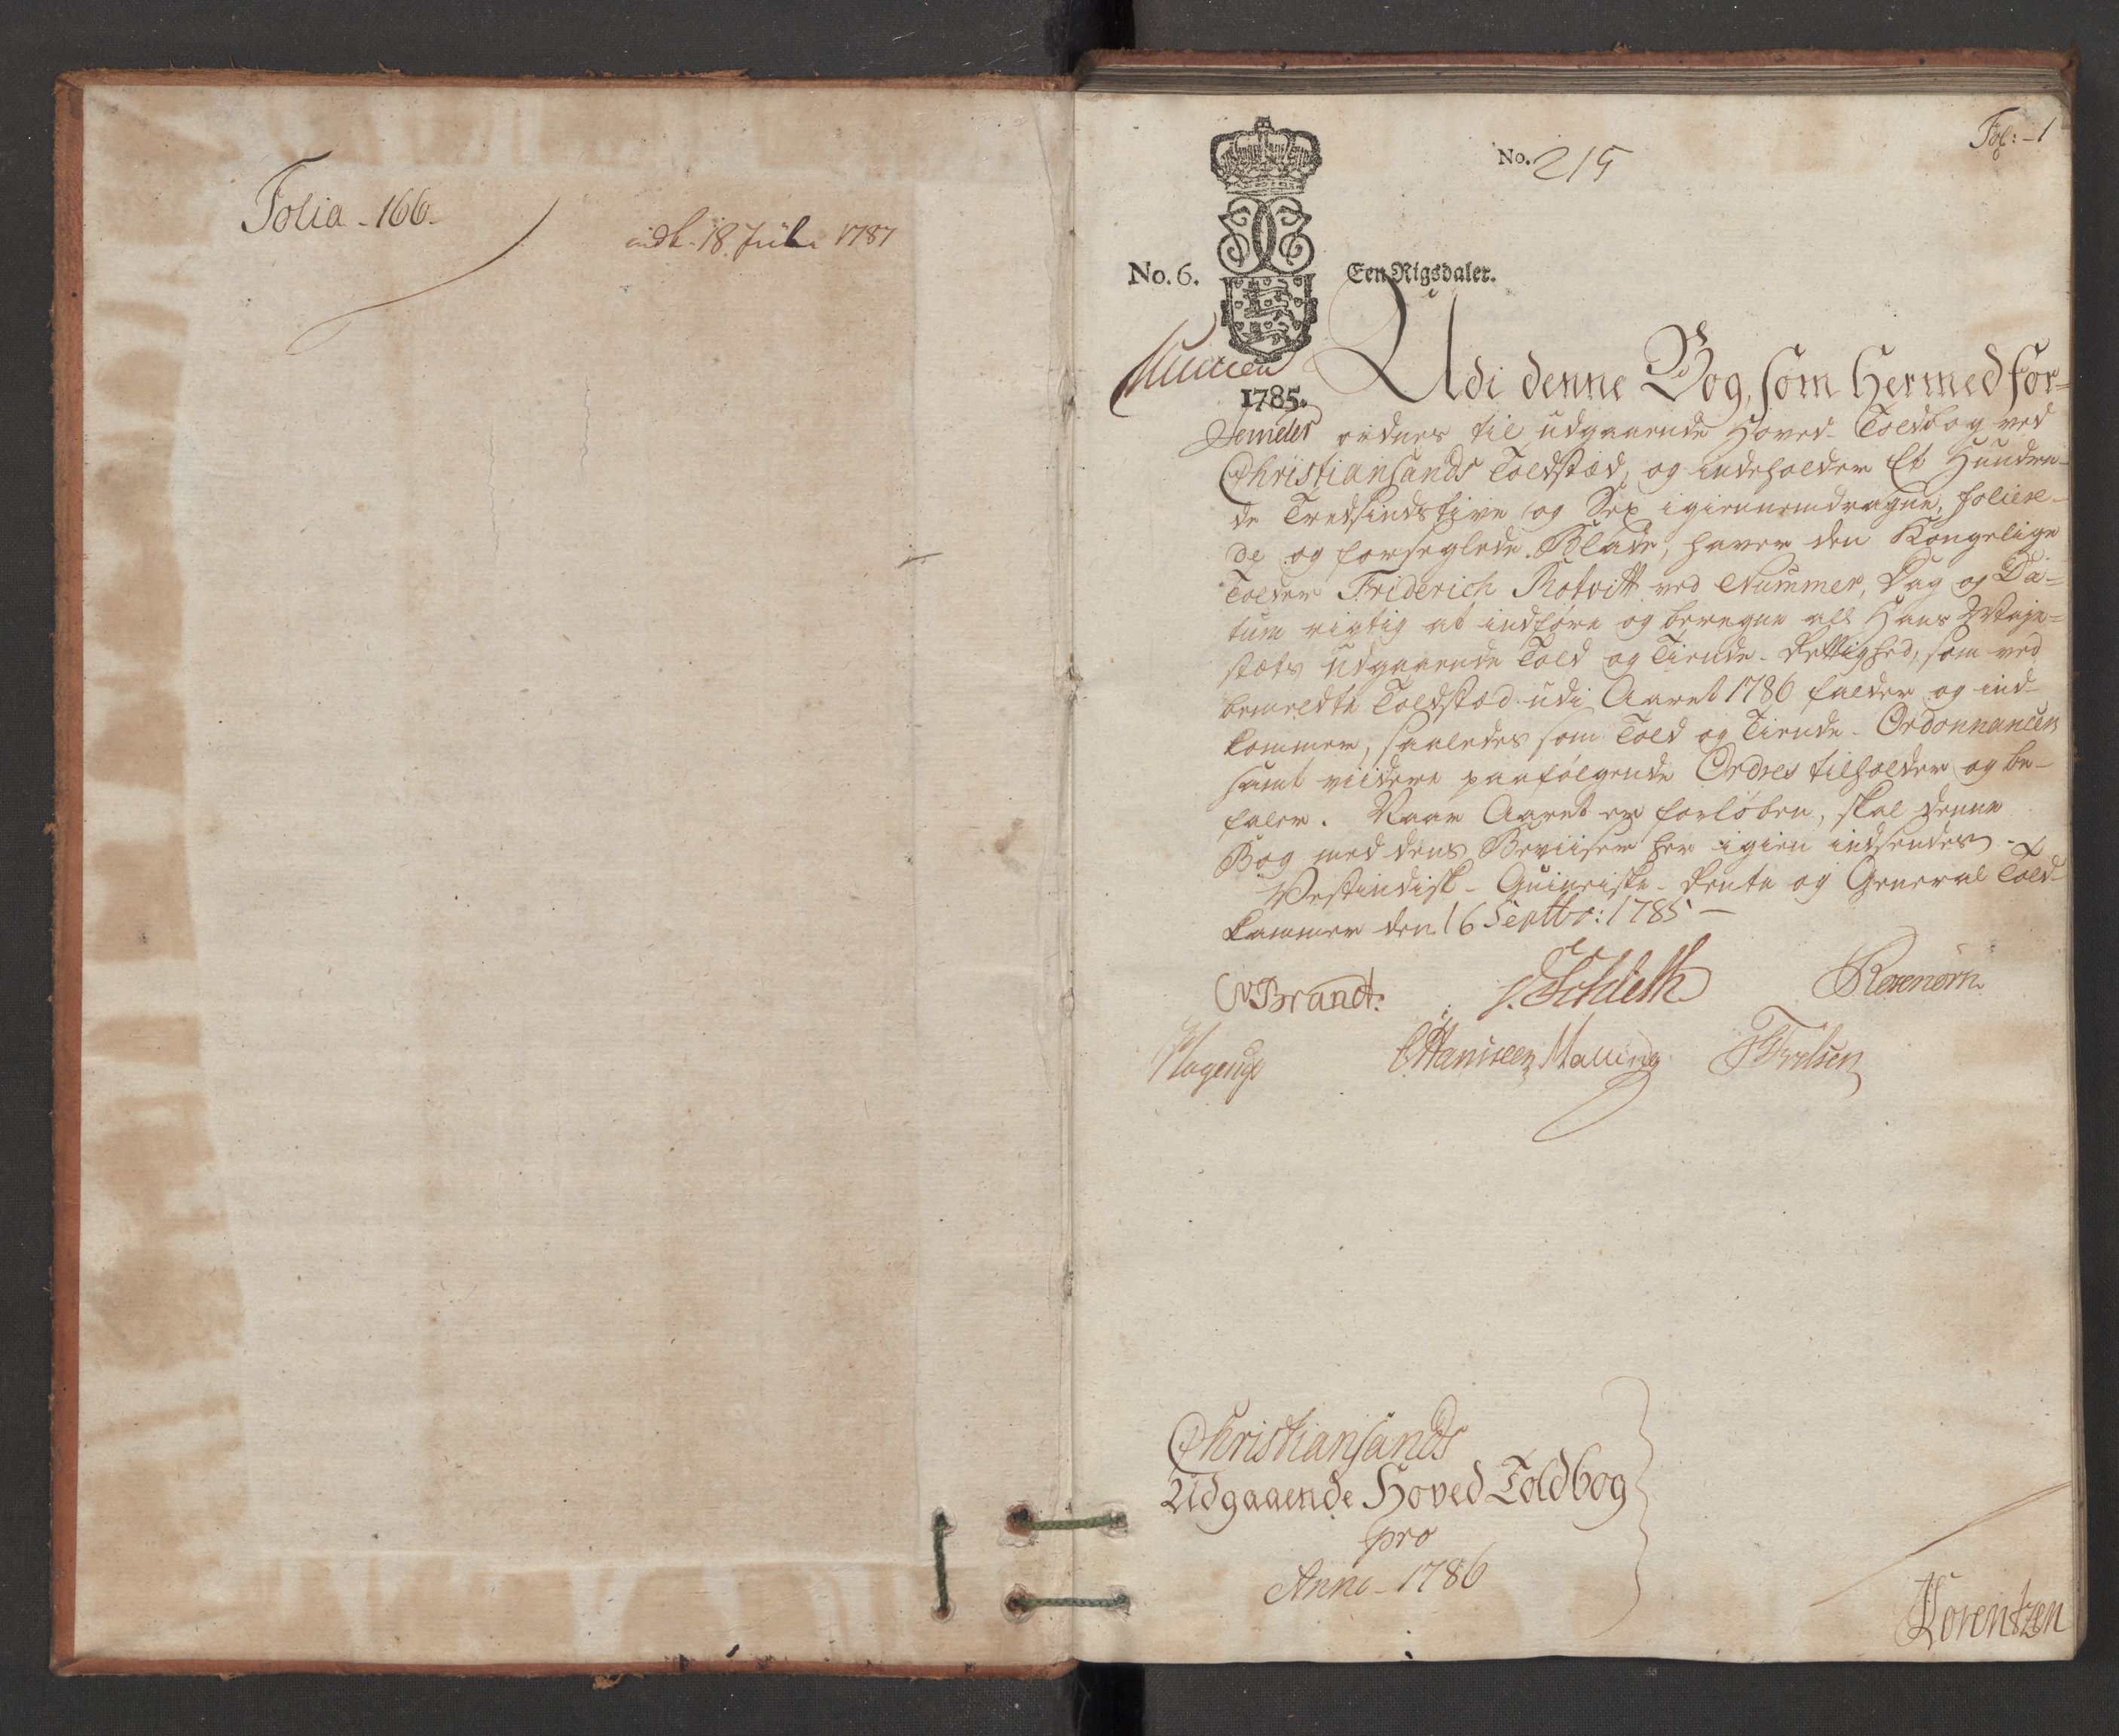 Folia - 166 -
indk. 18. Julii 1787
Fol: - 1
No. 215
No. 6.
Een Rigsdaler.
1785.
Udi denne Bog, som Hermed for-
ordnes til udgaaende Hoved-Toldbog ved
Christiansands Toldsted, og indeholder Et Hundre-
de Tredsindstive og Sex igiennemdragne, folier-
de og forseglede Blade, haver den Kongelige
Tolder Friderich Rotvitt ved Nummer, Dag og Da-
tum rigtig at indføre og beregne all Hans Maje-
stæts Udgaaende Told og Tiende-Rettighed, som ved
bemeldte Toldsted udi Aaret 1786 falder og ind-
kommer, saaledes som Told og Tiende-Ordonnancen
samt viidere paafølgende Ordres tilholder og be-
faler. Naar Aaret er forløben, skal denne
Bog med dens Beviiser her igien indsendes.
Vestindisk-Guineiske-Rente og General Told-
kammer den 16 Septbr: 1785 —
CVBrandt.
Rosenørn
Hagerup
OHansen Malling
Christiansands
Udgaaende Hoved Toldbog
pro
Anno - 1786
Lorentzen